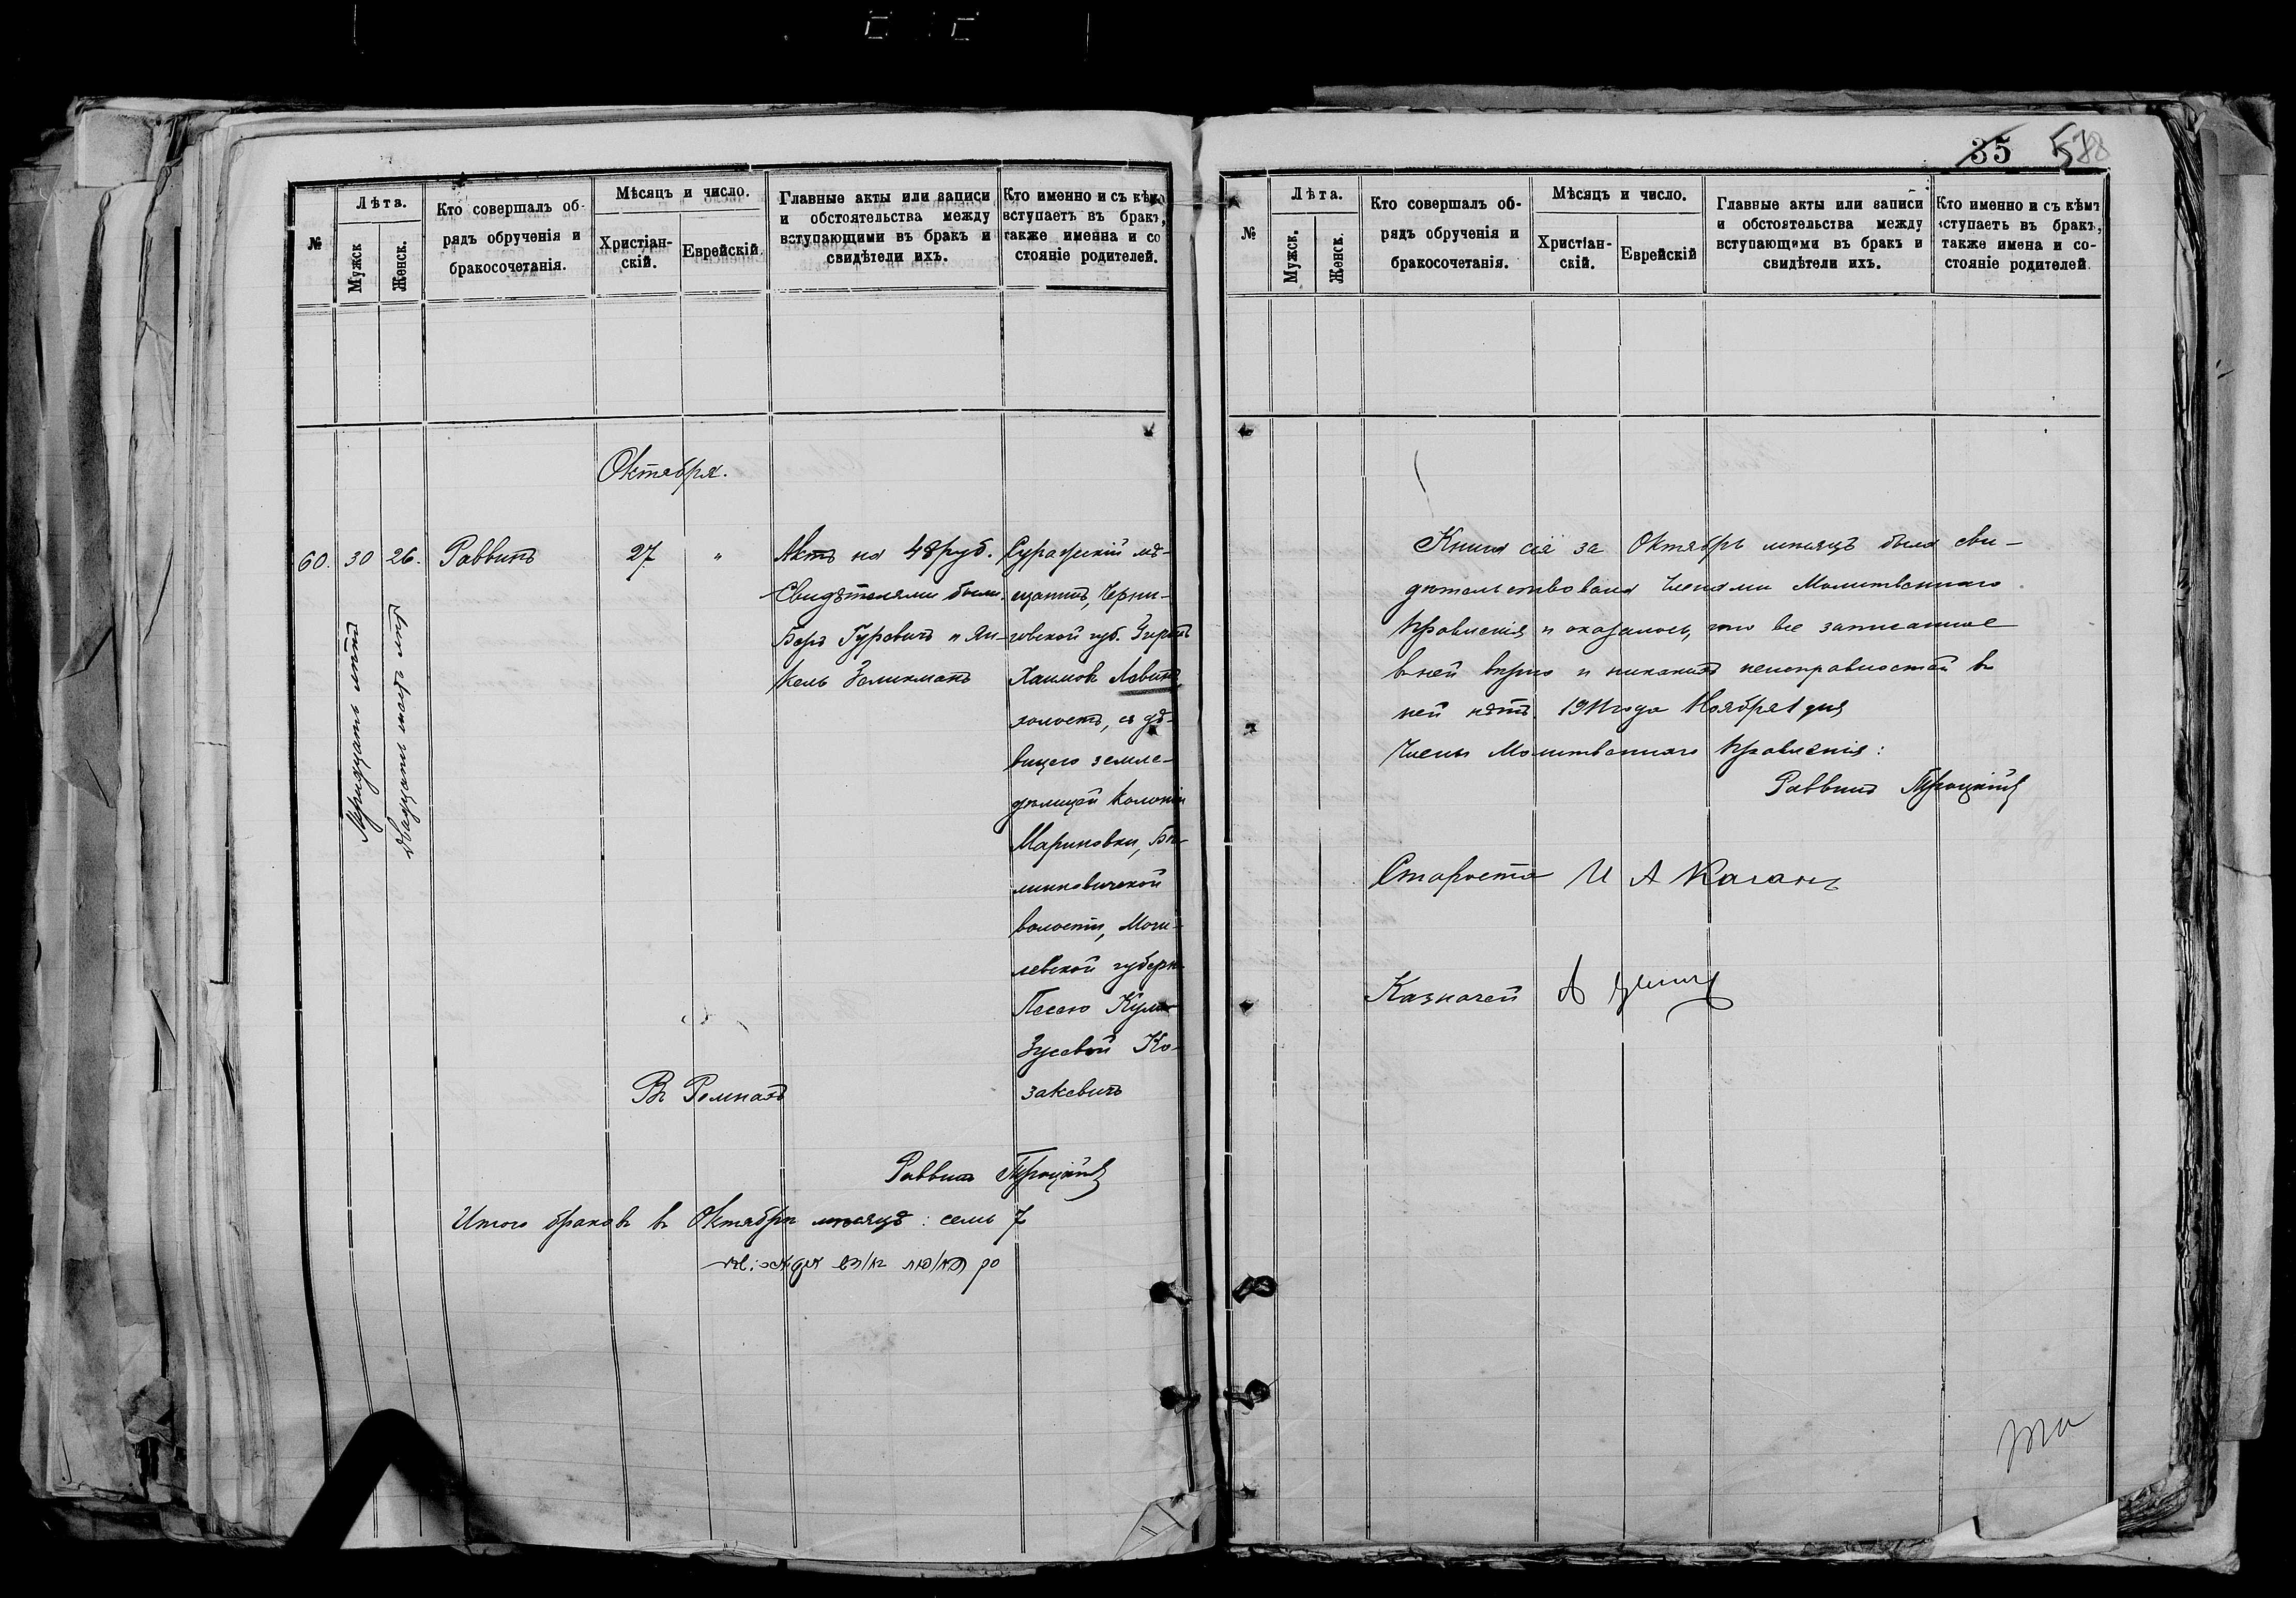 №
Лѣта.
Мужск
Женск.
Кто совершалъ об-
рядъ обрученія и
бракосочетанія.
Мѣсяцъ и число.
Христіан-
скій.
Еврейскій.
Главные акты или записи
и обстоятельства между
вступающими въ бракъ и
свидѣтели ихъ.
Кто именно и съ кѣмъ
вступаетъ въ бракъ,
также имена и со
стояніе родителей.
Октября.
60. 30 26. Раввинъ 27 " Актъ на 48 руб. Суражскій мѣ-
Свидѣтелями были: щанинъ, Черни-
Беръ Гуревичъ и Ян- говской губ.
кель Зеликманъ Хаимовъ Левинъ,
холостъ, съ дѣ-
вицею земле-
дѣлицей колоніи
Мариновки,
волости, Моги-
левской губерн.
Песею
Зусевой Ко-
закевичъ
Тридцать лѣтъ
Двадцать шесть лѣтъ
Раввинъ Троцкій
Итого браковъ въ Октябрѣ мѣсяцѣ: семь 7
35 588
№
Лѣта.
Мужск.
Женск.
Кто совершалъ об-
рядъ обрученія и
бракосочетанія.
Мѣсяцъ и число.
Христіан-
скій.
Еврейскій
Главные акты или записи
и обстоятельства между
вступающими въ бракъ и
свидѣтели ихъ.
Кто именно и съ кѣмъ
вступаетъ въ бракъ,
также имена и со-
стояніе родителей.
Книга сія за Октябрь мѣсяцъ была сви-
дѣтельствована Членами Молитвеннаго
Правленія и оказалось, что все записанное
въ ней вѣрно и никакихъ неисправностей въ
ней нѣтъ. 1911 года Ноября 1 дня
Члены Молитвеннаго Правленія:
Раввинъ Троцкій
Староста И А Каганъ
Казначей А